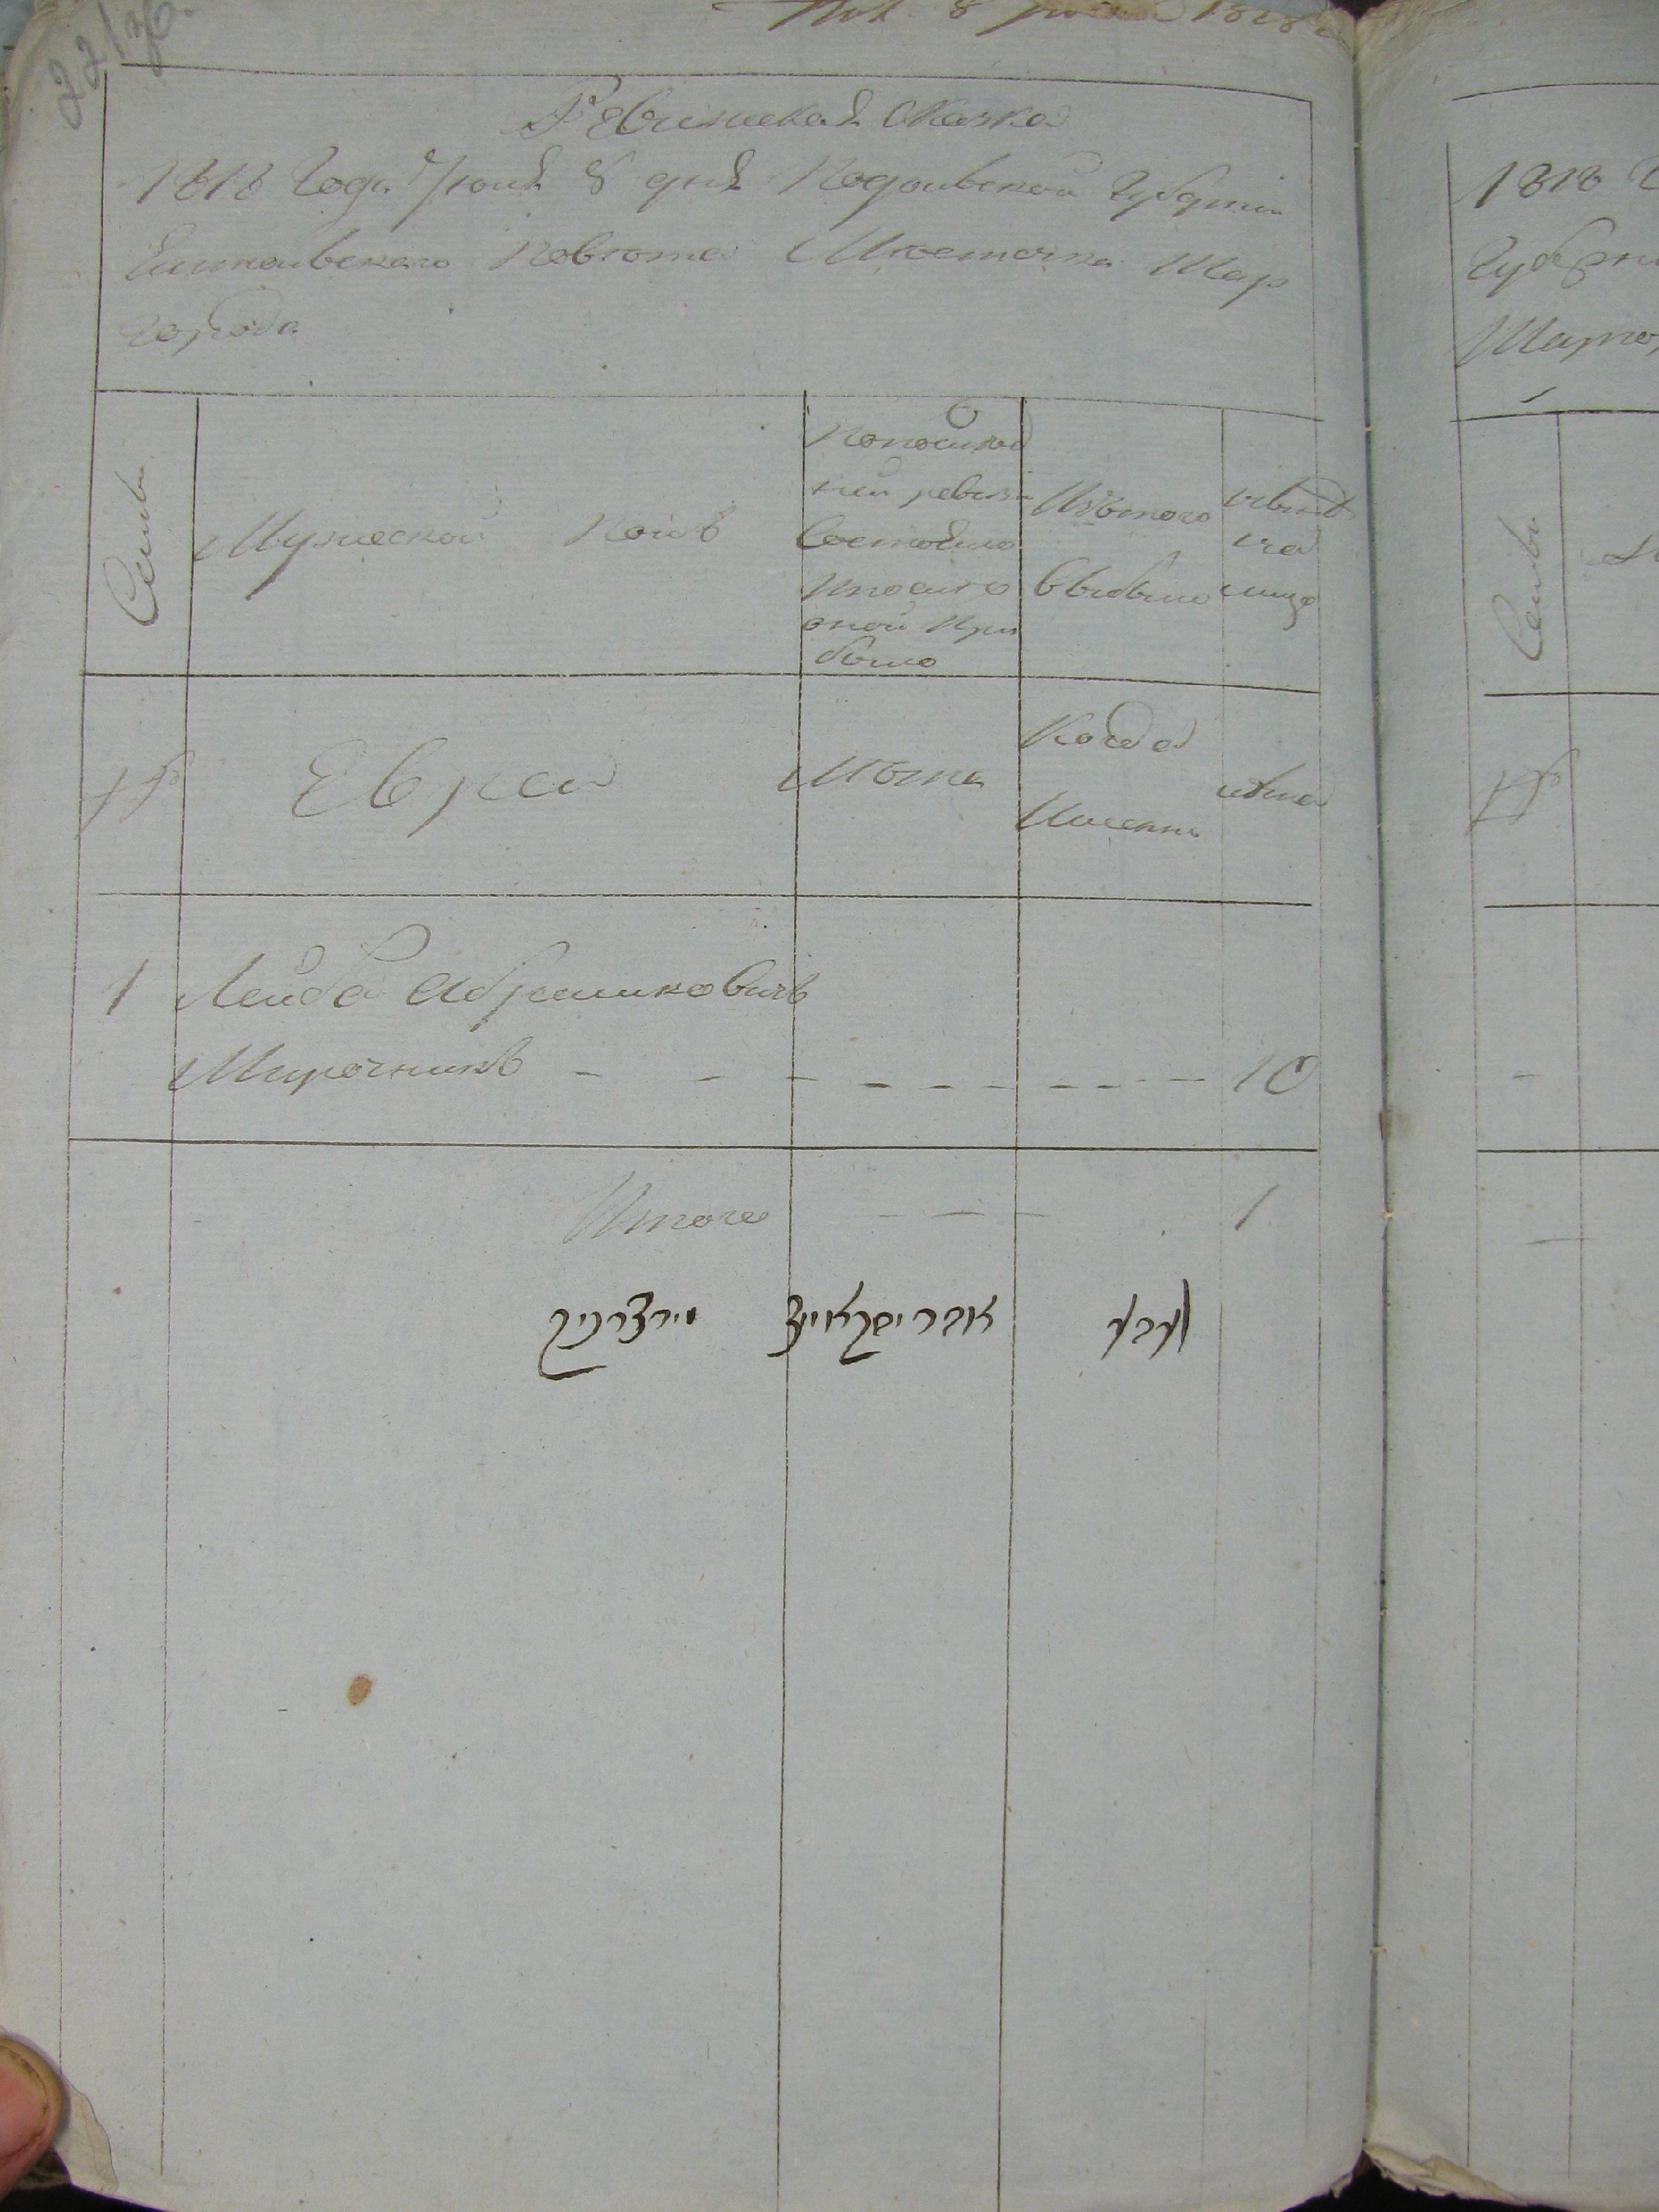 221 об.
1818
Ревизская Сказка
1818 Года Июня 8 дня Подольской Губернии
Ямпольского Повета Местечка Шар
города
Семьи
Мужеской Полъ
По последней ревизии
Состояло
и после
оной При
было
Изъ того
выбыло
ныне
на
лицо
№
Евреи
Лета
Когда
Именно
лета
1 Лейба Абрамковичъ
Мирочникъ - - - - - - - - 10
Итого - - - 1
לייבע אברימקאוויץ מירצרניק
1818
Губерни
Шаро
Семьи
№